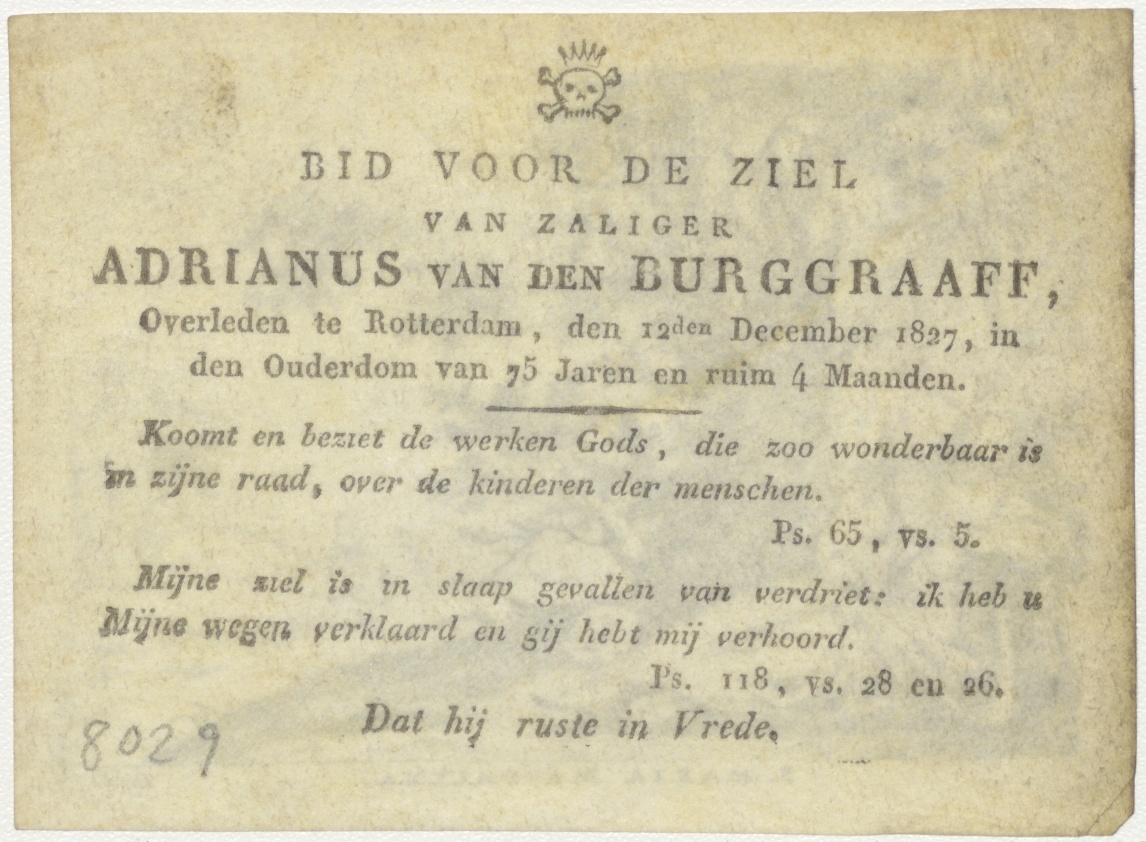 BID VOOR DE ZIEL
VAN ZALIGER
ADRIANUS VAN DEN BURGGRAAFF,
Overleden te Rotterdam, den 12den December 1827, in
den Ouderdom van 75 Jaren en ruim 4 Maanden.
Koomt en beziet de werken Gods, die zoo wonderbaar is
in zijne raad, over de kinderen der menschen.
Ps. 65, vs. 5.
Mijne ziel is in slaap gevallen van verdriet: ik heb u
Mijne wegen verklaard en gij hebt mij verhoord.
Ps. 118, vs. 28 en 26.
Dat hij ruste in Vrede.
8029